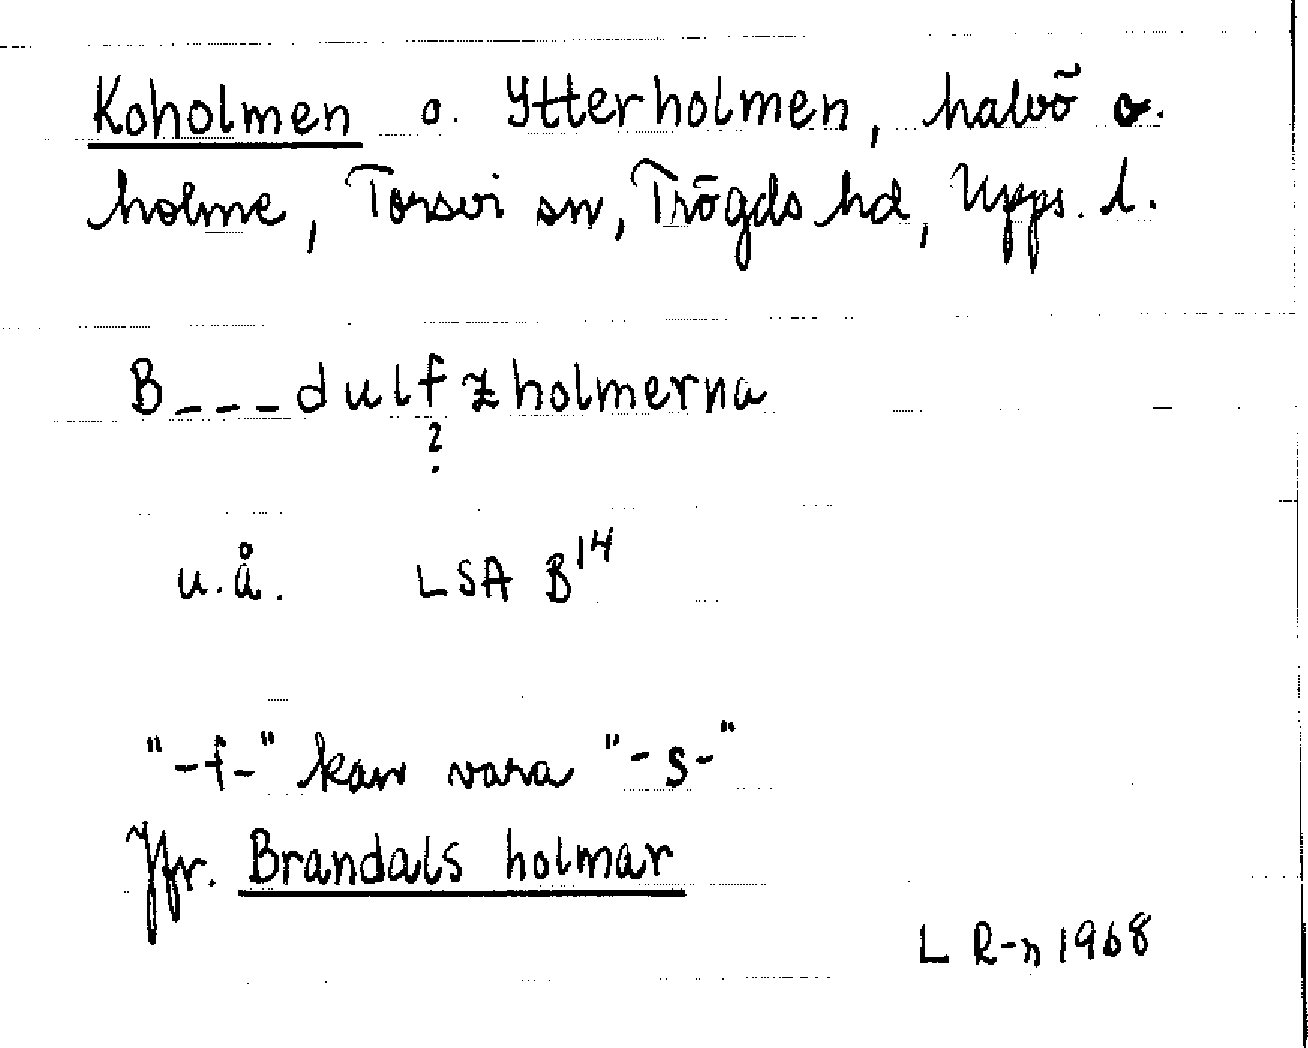 Koholmen o. Ytterholmen, halvö o.
holme, Torsvi sn, Trögds hd, Upps. l.
B---dulfzholmerna
?
u.å. LSA B14
"-f-" kan vara "-s-"
Jfr. Brandals holmar
L R-n 1968